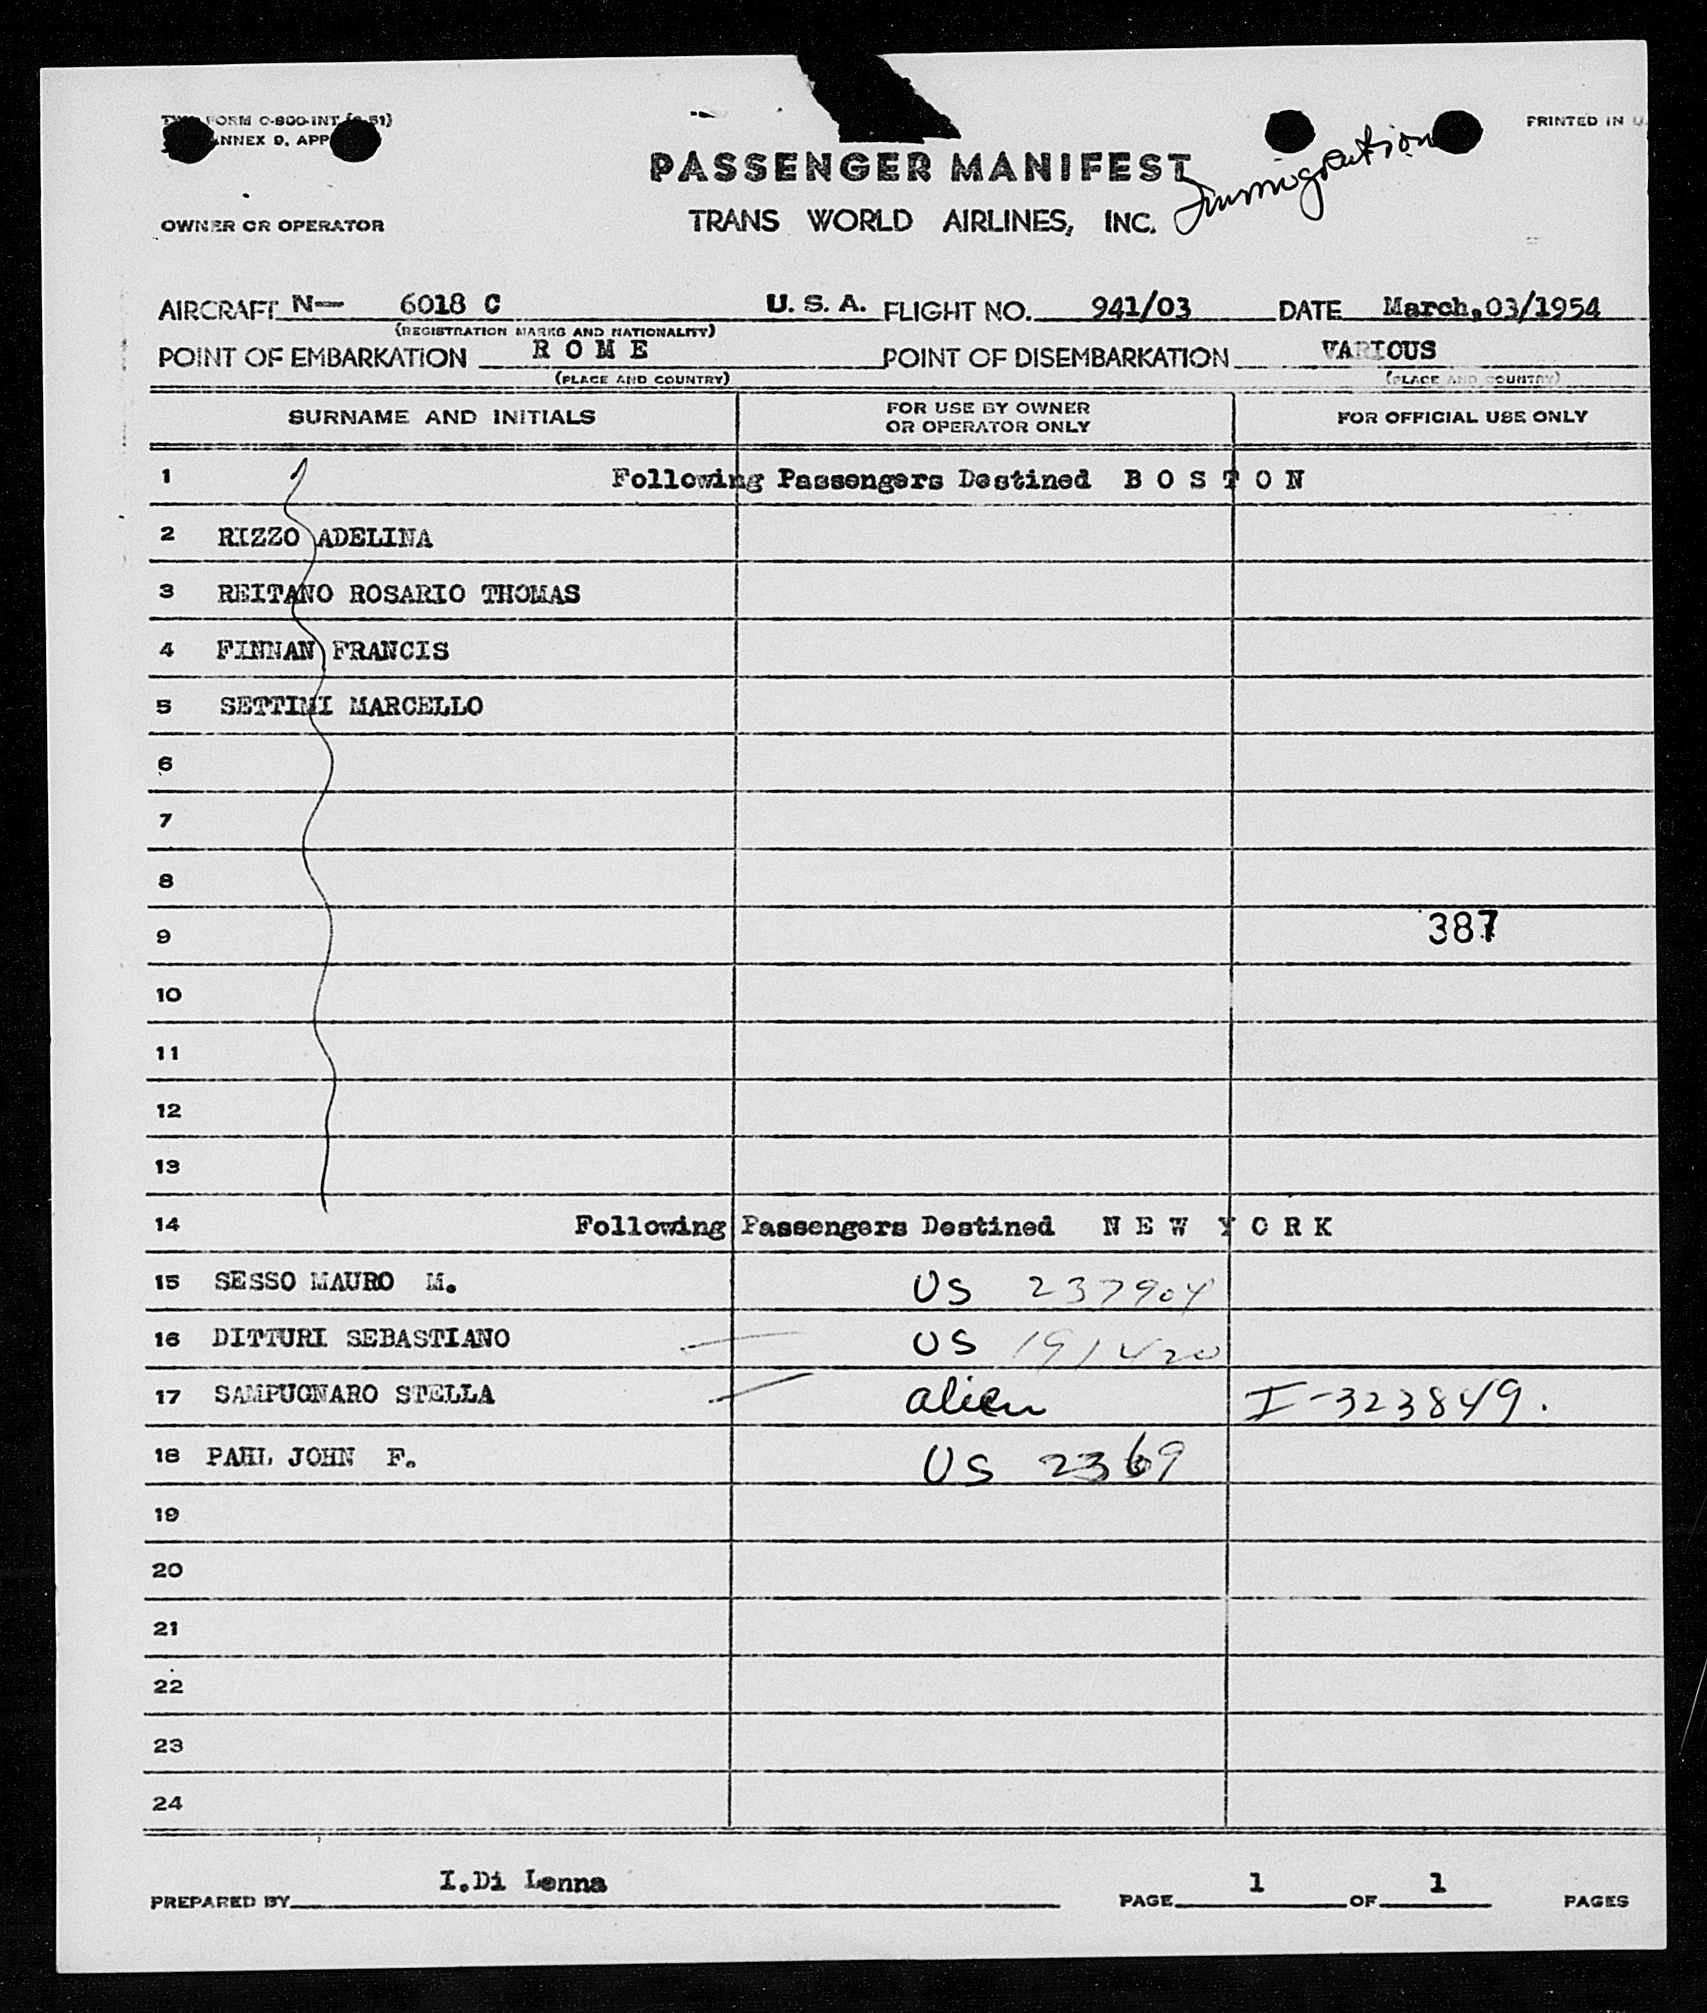 FORM C-800-INT
ANNEX 9, APP
PRINTED IN U.
PASSENGER MANIFEST
Immigration
OWNER OR OPERATOR
TRANS WORLD AIRLINES, INC.
AIRCRAFT N— 6018 C U. S. A. FLIGHT NO. 941/03 DATE March,03/1954
(REGISTRATION MARKS AND NATIONALITY)
POINT OF EMBARKATION R O M E POINT OF DISEMBARKATION VARIOUS
(PLACE AND COUNTRY) (PLACE AND COUNTRY)
SURNAME AND INITIALS FOR USE BY OWNER OR OPERATOR ONLY FOR OFFICIAL USE ONLY
1 Following Passengers Destined B O S T O N
2 RIZZO ADELINA
3 REITANO ROSARIO THOMAS
4 FINNAN FRANCIS
5 SETTIMI MARCELLO
6
7
8
9 387
10
11
12
13
14 Following Passengers Destined N E W Y O R K
15 SESSO MAURO M. US 237904
16 DITTURI SEBASTIANO US 191420
17 SAMPUGNARO STELLA alien I-323849.
18 PAHL JOHN F. US 2369
19
20
21
22
23
24
PREPARED BY I.Di Lenna PAGE 1 OF 1 PAGES